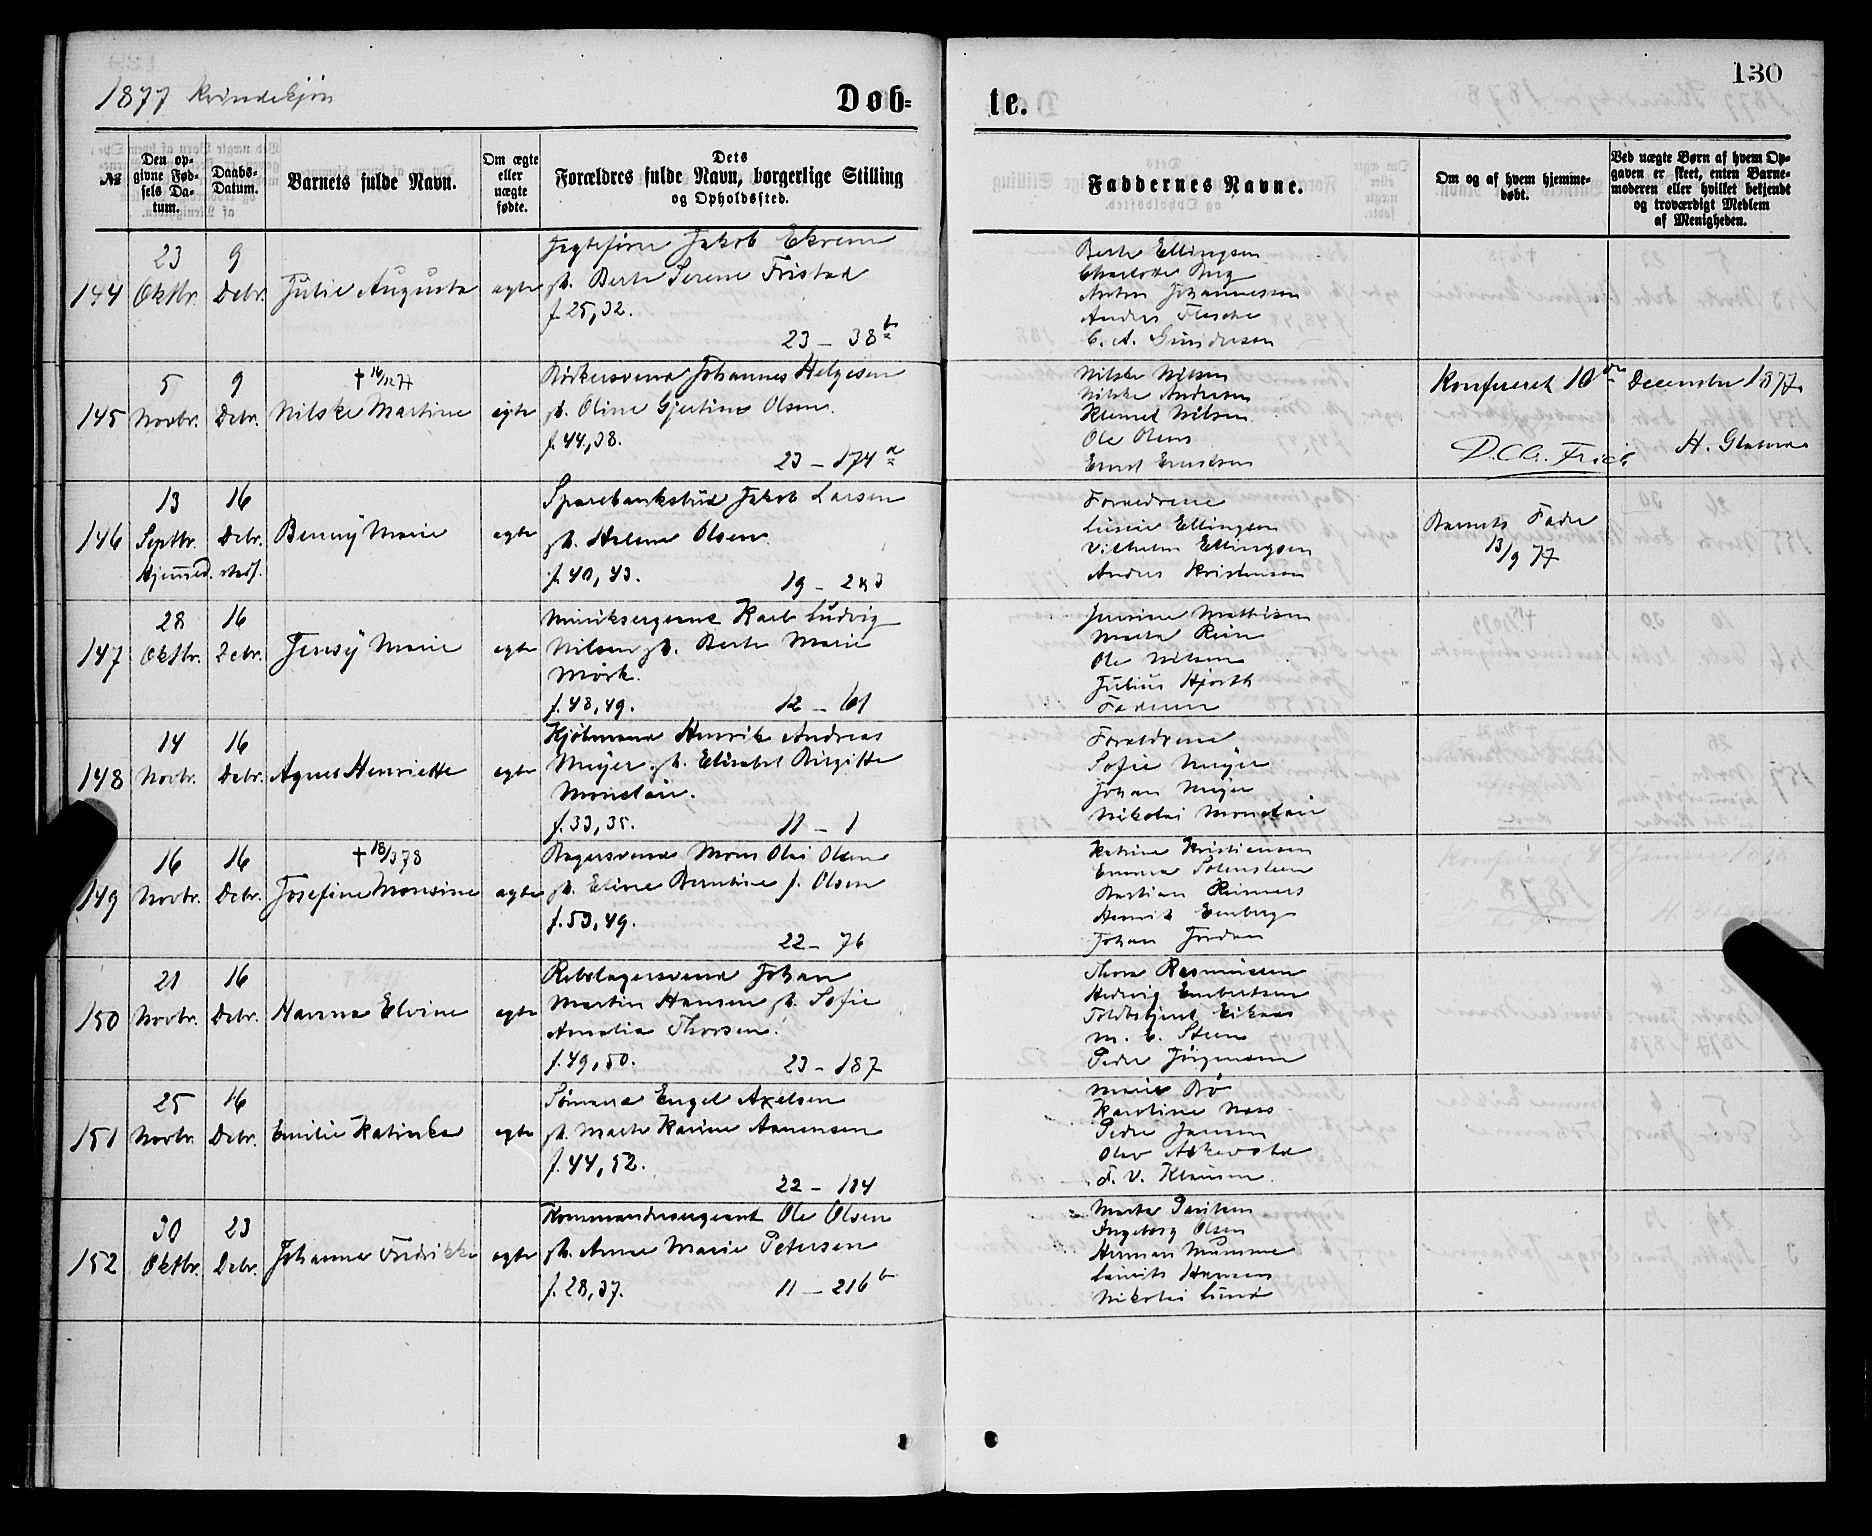 130
1877 Kvindekjøn
Døb-
te.
№
Den op-
givne Fød-
sels Da-
tum.
Daabs-
Datum.
Barnets fulde Navn.
Om ægte
eller
uægte
fødte.
Dets
Forældres fulde Navn, borgerlige Stilling
og Opholdssted.
Faddernes Navne.
Om og af hvem hjemme-
døbt.
Ved uægte Børn af hvem Op-
gaven er skeet, enten Barne-
moderen eller hvilket bekjendt
og troværdigt Medlem
af Menigheden.
144
23
Oktbr.
9
Debr.
Julie Augusta
ægte
Jagtefører Jakob Ekrem
p. Berte Serene Fristad
f. 25, 32.
23 – 38 b
Berte Ellingsen
Charlotte
Anton Johannessen
Anders Flesche
C. A. Gundersen
145
5
Novbr.
9
Debr.
† 16/12 77
Nilske Martine
ægte
Bødkersvend Johannes Helgesen
p. Oline Gjertine Olsen.
f. 44, 38.
23 – 174 a
Nilske Nilsen
Nilske Andersen
Nilsen
Ole Olsen
Konfereret 10 den December 1877
D.C.G. Frich
146
13
Septbr.
16
Debr.
Hjemmed. stadf.
Benny Marie
ægte
Sparebanksbud Jakob Larsen
p. Helene Olsen.
f. 40, 43.
19 – 283
Forældrene
Lusie Ellingsen
Vilhelm Ellingsen
Anders Kristensen
Barnets Fader
13/9 77
147
28
Oktbr.
16
Debr.
Jensy Marie
ægte
Musiksergeant Karl Ludvig
Nilsen p. Berte Marie
Mørk.
f. 48, 49.
12 – 61
Mathisen
Marta
Ole Nilsen
Julius Hjorth
Faderen
148
14
Novbr.
16
Debr.
Agnes Henriette
ægte
Kjøbmand Henrik Andreas
Meyer p. Elisabet Birgitte
Monclair.
f. 33, 35.
11 – 1
Forældrene
Sofie Meyer
Johan Meyer
Nikolai Monclair
149
16
Novbr.
16
Debr.
† 18/3 78
Josefine Monsine
ægte
Bagersvend Mons Olai Olsen
p. Eline Berntine f. Olsen
f. 53, 49.
22 – 76
Katrine Kristiansen
Emma
Bastian Reimers
Henrik Emberg
Johan Jordan
150
21
Novbr.
16
Debr.
Hanna Elvine
ægte
Rebslagersvend Johan
Martin Hansen p. Sofie
Amalia Thorsen.
f. 49, 50.
23 – 187
Thora Rasmussen
Hedevig Engbertsen
Toldbetjent Eikaas
M. E. Steen
Peder Jørgensen
151
25
Novbr.
16
Debr.
Emilie Katinka
ægte
Sømand Engel Axelsen
p. Marte Karine Aanensen
f. 44, 52.
22 – 114
Marie Bø
Karoline Næss
Peder Jansen
Olav
F. V. Klausen
152
30
Oktbr.
23
Debr.
Johanna Fredrikke
ægte
Kommandersergeant Ole Olsen
p. Anne Marie Petersen
f. 28, 37.
11 – 216 b
Marta
Ingeborg Olsen
Herman Mumme
Laurits Hansen
Nikolai Lund